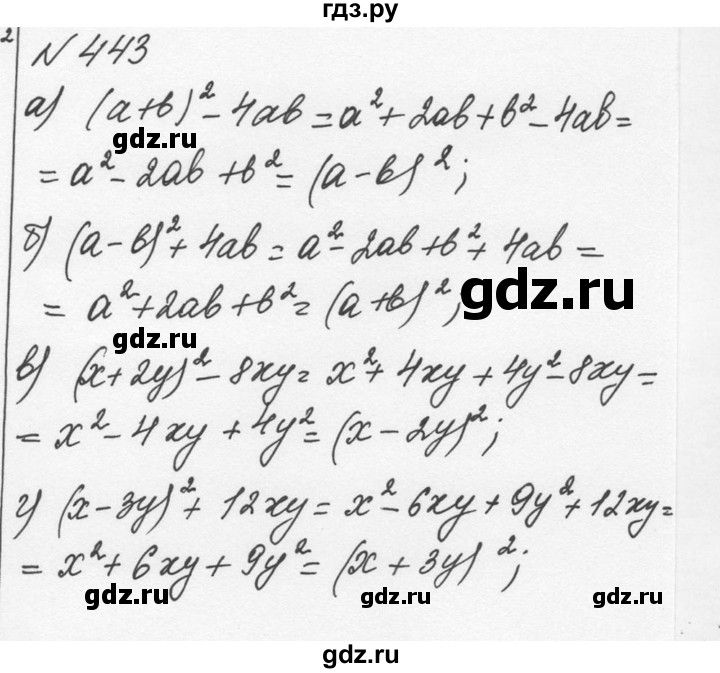 гдз.ру
2
№ 443
а) (a+b)² - 4ab = a² + 2ab + b² - 4ab =
gdz.ru
= a² - 2ab + b² = (a - b)²;
б) (a - b)² + 4ab = a² - 2ab + b² + 4ab =
= a² + 2ab + b² = (a + b)²;
gdz.ru
gdz.ru
в) (x + 2y)² - 8xy = x² + 4xy + 4y² - 8xy =
= x² - 4xy + 4y² = (x - 2y)²;
г) (x - 3y)² + 12xy = x² - 6xy + 9y² + 12xy =
= x² + 6xy + 9y² = (x + 3y)²;
gdz.ru gdz.ru gdz.ru
gdz.ru